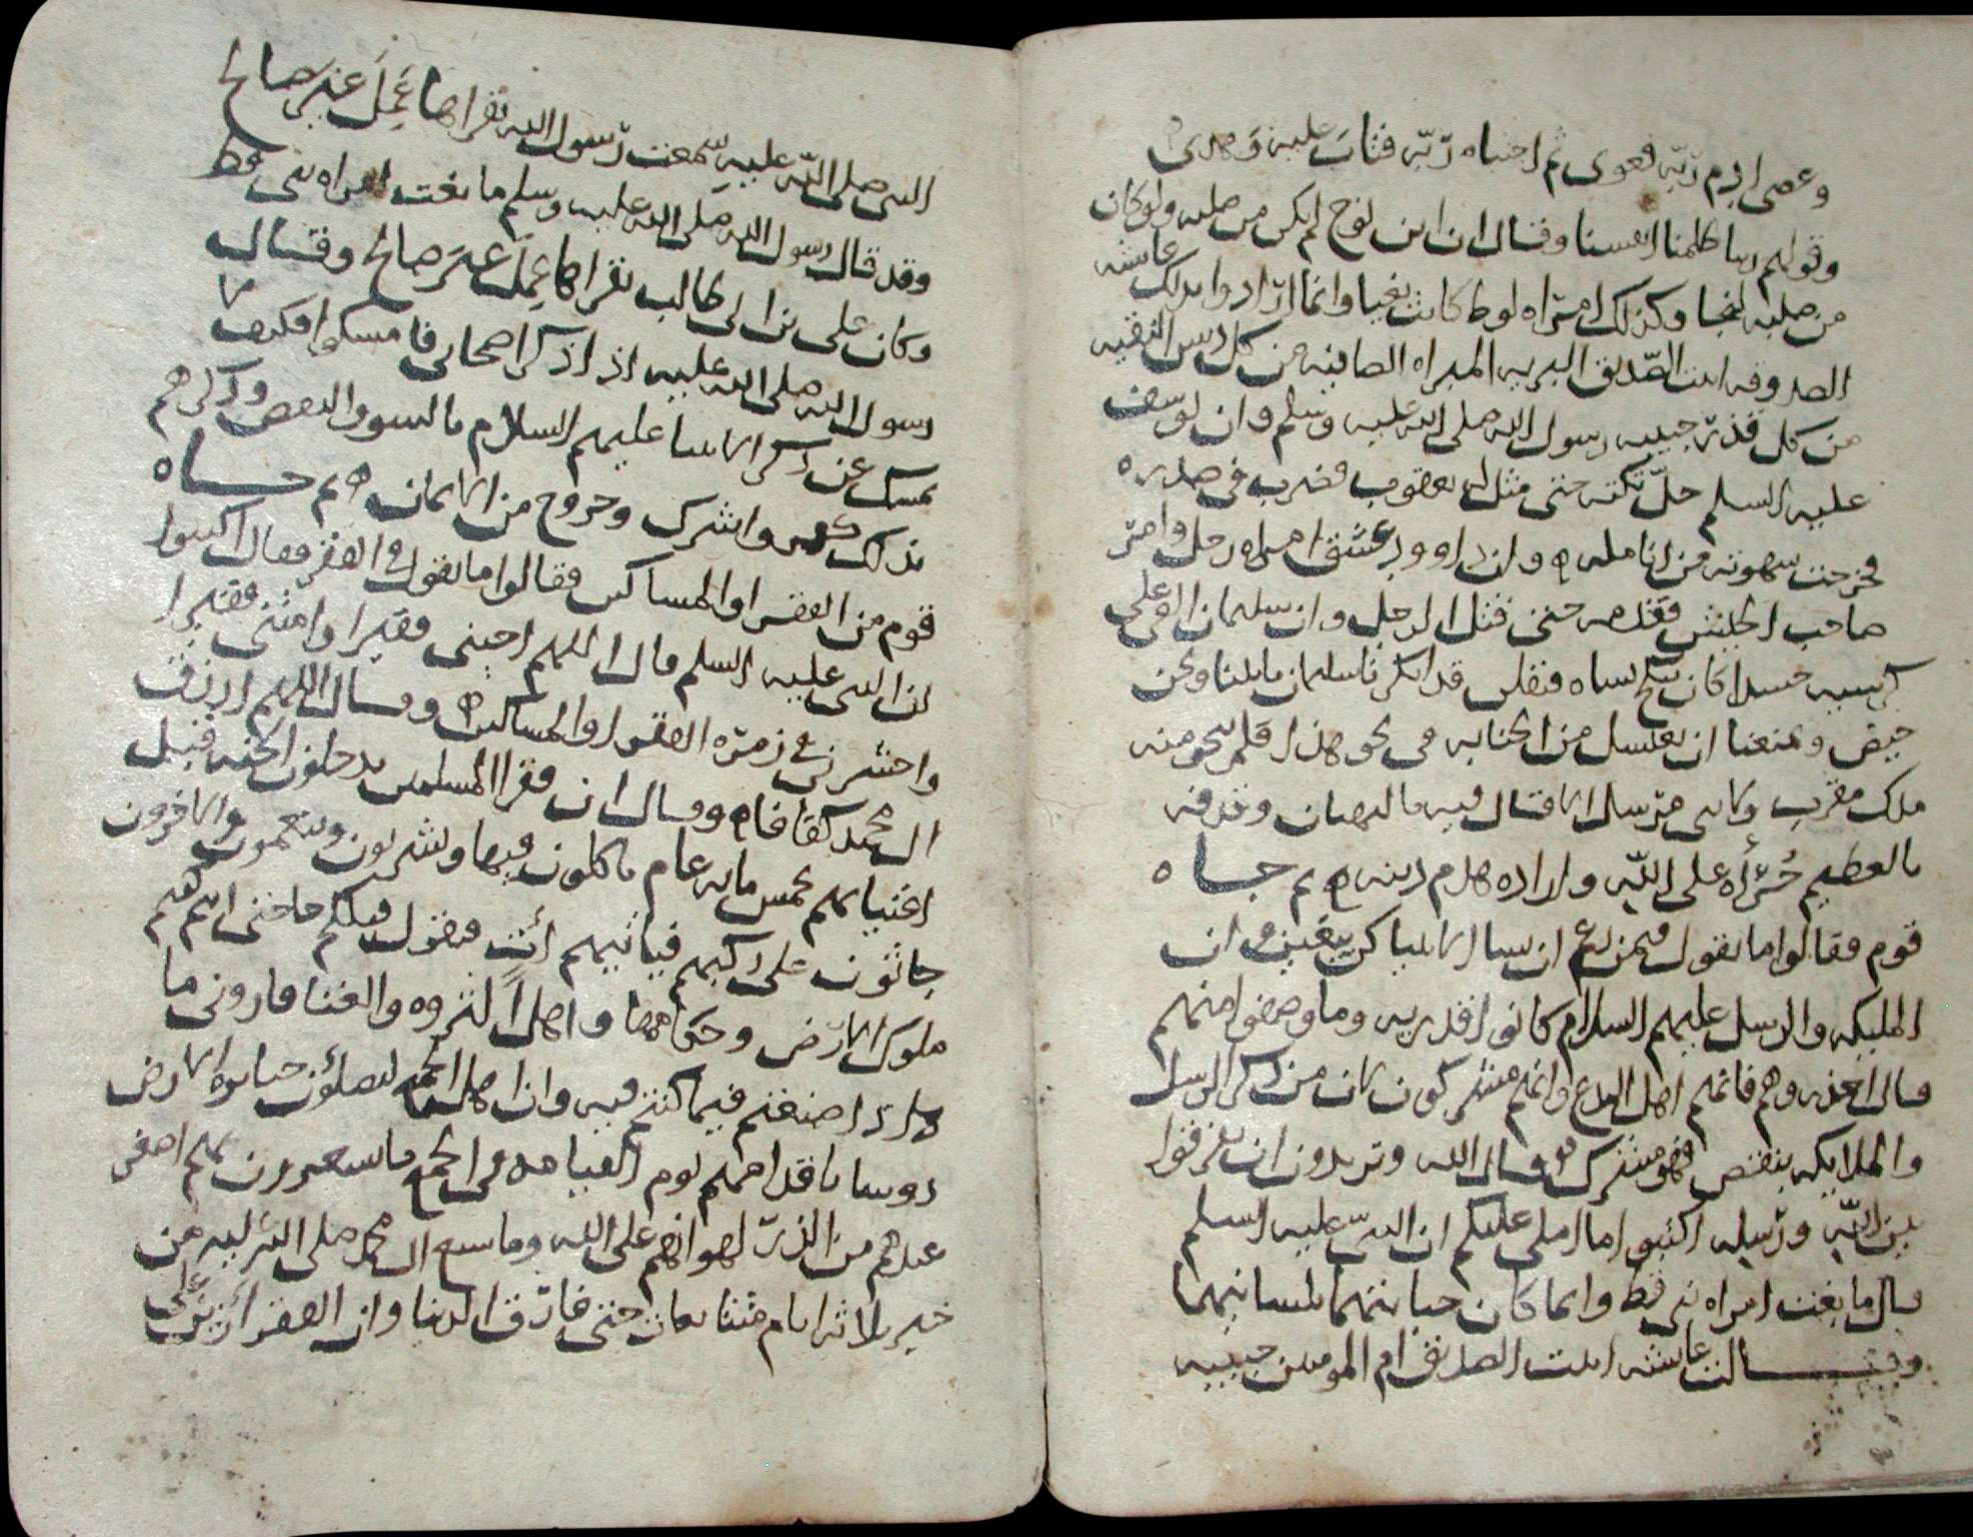 وعصى ادم ربه فغوى ثم اجتباه ربه فتاب عليه وهدى
وقولهم ربنا ظلمنا انفسنا وقال ان ابن نوح لم يكن من صلبه ولو كان
من صلبه لنجا وكذلك امراه لوط كانت بغيا وانما ارادوا بذلك عايشه
الصدوقه ابنت الصديق البريه المبراه الصاينه من كل دنس النقيه
من كل قذر حبيبه رسول الله صلى الله عليه وسلم وان يوسف
عليه السلم حل تكته حتى مثل له يعقوب فضرب في صدره
فخرجت شهوته من انامله وان داوود عشق امراه رجل وامر
صاحب الجيش فقدمه حتى قتل الرجل وان سليمان القي على
كرسيه جسدا كان ينكح نساه فقلن قد انكرنا سليمان ياتينا ونحن
حيض ويمنعنا ان نغتسل من الجنابه في نحو هذا فلم ينجو منه
ملك مقرب ولا نبي مرسل الا قال فيه بالبهتان وقذفه
بالعظيم جراه على الله واراده هدم دينه ثم جاه
قوم فقالوا ما تقول فيمن زعم ان نسا الانبيا كن يبغين وان
المليكه والرسل عليهم السلام كانوا قدريه وما وصفوا منهم
قال احذروهم فانهم اهل البدع وانهم مشركون لان من ذكر الرسل
والملايكه بنقص فهو مشرك قال الله وتريدون ان تفرقوا
بين الله ورسله اكتبوا ما املي عليكم ان النبي عليه السلم
قال ما بغت امراه نبي قط وانما كان خيانتهما بلسانهما
وقالت عايشه ابنت الصديق ام المومنين حبيبه
النبي صلى الله عليه سمعت رسول الله يقراها عمل غير صالح
وقد قال رسول الله صلى الله عليه وسلم ما بغت امراه نبي قط
وكان علي بن ابي طالب يقراها عمل غير صالح وقال
رسول الله صلى الله عليه اذا ذكر اصحابي فامسكوا فكيف لا
نمسك عن ذكر الانبيا عليهم السلام بالسوء والنقص وذكرهم
بذلك كفر واشرك وخروج من الايمان ثم جاه
قوم من الفقرا والمساكين فقالوا ما تقول في الفقر فقال اكتبوا
ان النبي عليه السلم قال اللهم احيني فقيرا وامتني فقيرا
واحشرني في زمره الفقرا والمساكين وقال اللهم ارزق
ال محمد كفافا وقال ان فقرا المسلمين يدخلون الجنه قبل
اغنيايهم بخمس مايه عام ياكلون فيها ويشربون ويتنعمون والاخرون
جاثون على ركبهم فياتيهم ات فيقول قبلكم حاجتي انتم كنتم
ملوك الارض وحكامها واهل الثروه والغنا فاروني ما
ذا صنعتم فيما كنتم فيه وان اهل الجنه ليصلون جبابره الارض
روسا باقدامهم يوم القيامه في الجمع ما يشعرون بهم اصغر
عندهم من الذر لهوانهم على الله وما شبع ال محمد صلى الله عليه من
خبز ثلاثه ايام متتابعات حتى فارق الدنيا وان الفقر ازين على